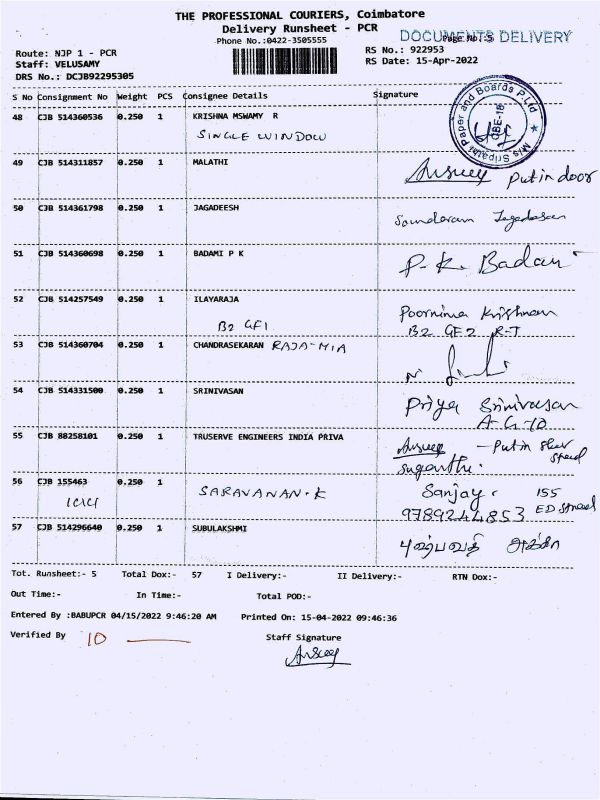 THE PROFESSIONAL COURIERS, Coimbatore
Delivery Runsheet - PCR
DOCUMENTS DELIVERY
Phone No.:0422-3505555
Route: NJP 1 - PCR
RS No.: 922953
Staff: VELUSAMY
RS Date: 15-Apr-2022
DRS No.: DCJB92295305
S No Consignment No Weight PCS Consignee Details Signature
M/s Sripathi Paper and Boards P Ltd
CBE-18
48 CJB 514360536 0.250 1 KRISHNA MSWAMY R
SINGLE WINDOW
49 CJB 514311857 0.250 1 MALATHI
Put in door
50 CJB 514361798 0.250 1 JAGADEESH
Soundaram Jagadesan
51 CJB 514360698 0.250 1 BADAMI P K
P. K. Badami
52 CJB 514257549 0.250 1 ILAYARAJA
Poornima Krishnan
B2 GF1
B2 GF2 R-T
53 CJB 514360704 0.250 1 CHANDRASEKARAN RAJA-MIA
54 CJB 514331500 0.250 1 SRINIVASAN
Priya Srinivasan
A-G-10
55 CJB 88258101 0.250 1 TRUSERVE ENGINEERS INDIA PRIVA
- Put in
suganthi.
56 CJB 155463 0.250 1 SARAVANAN.K
Sanjay. 155
9789244853 ED
57 CJB 514296640 0.250 1 SUBULAKSHMI
அக்கா
Tot. Runsheet:- 5 Total Dox:- 57 I Delivery:- II Delivery:- RTN Dox:-
Out Time:- In Time:- Total POD:-
Entered By :BABUPCR 04/15/2022 9:46:20 AM Printed On: 15-04-2022 09:46:36
Verified By 10
Staff Signature